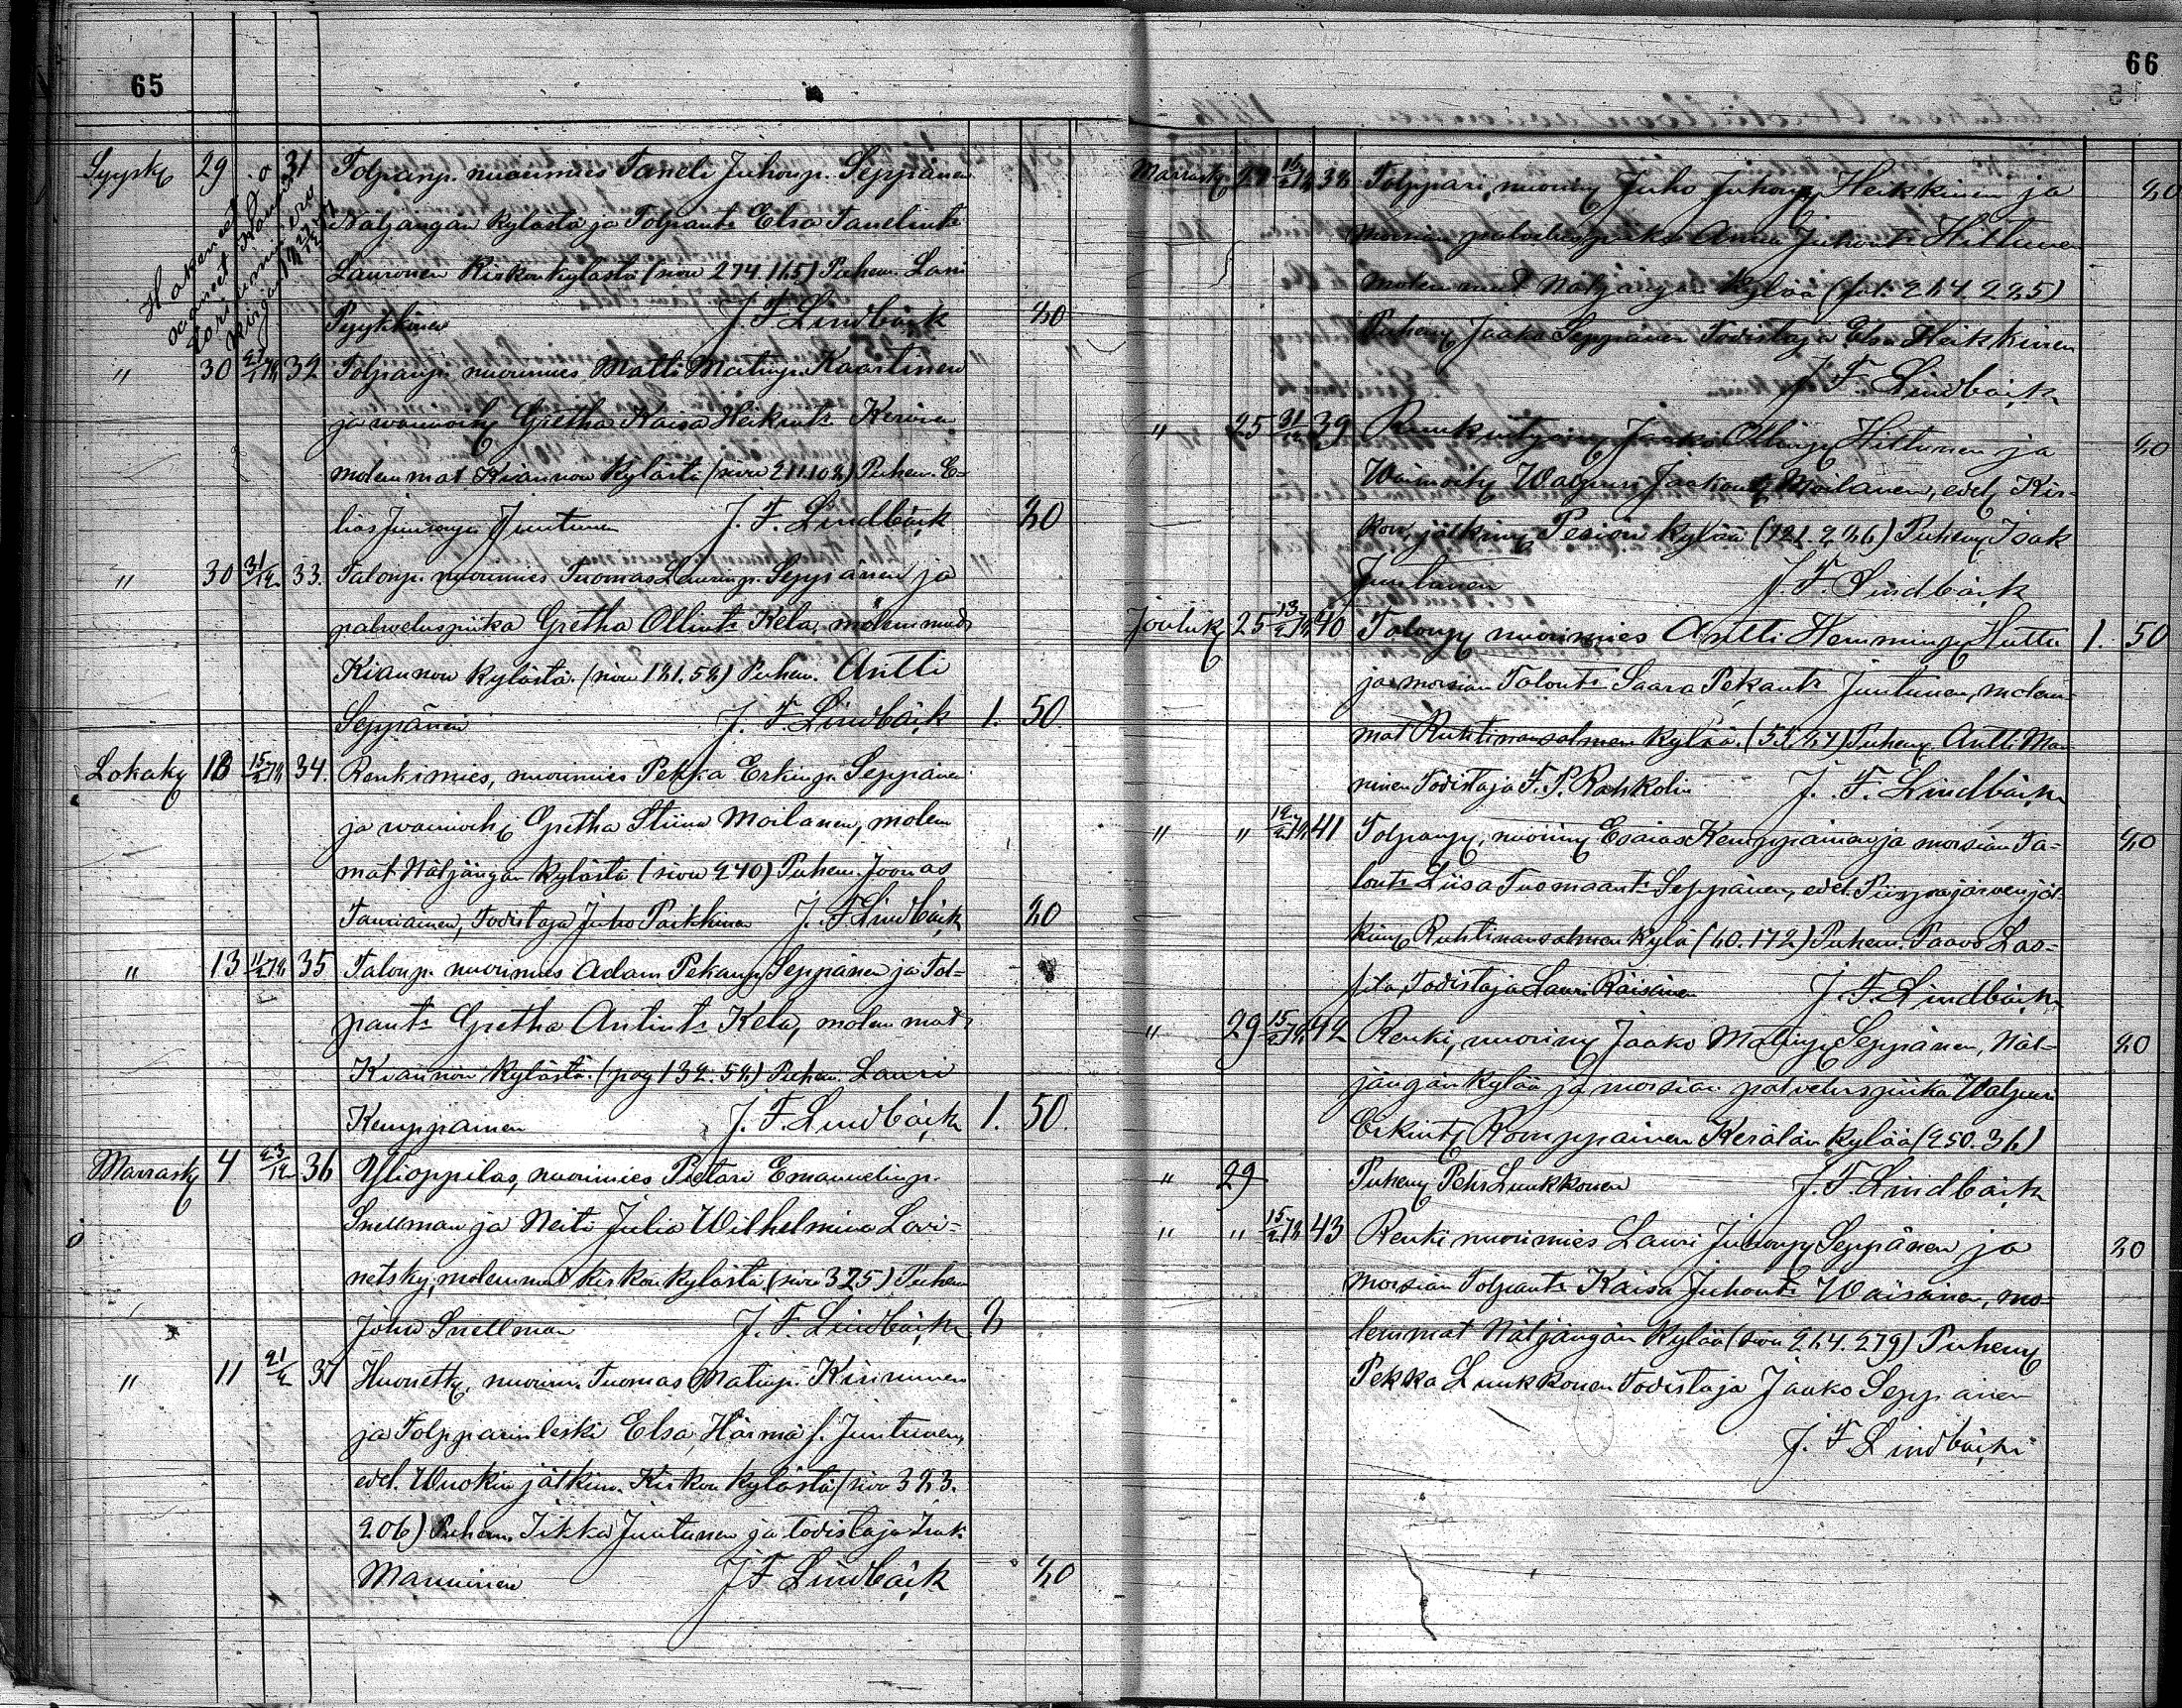 65
Syysk 29 31 Tolpanp. nuorimies Taneli Juhonp. Seppänen
Näljängän kylästä ja Tolpant. Elsa Tanelint.
Lauronen Kirkonkylästä (sivu 274. 165) Puhem. Lauri
Pyykkönen J. F. Lindbäck 80
" 30 32 Tolpanp. nuorimies Matti Matinp. Kaartinen
ja waimoih. Gretha Kaisa Heikint. Kerinen
molemmat Kiannon kylästä (sivu 211. 108) Puhem. E-
lias Juntunen J. F. Lindbäck 80
" 30 31/12 33. Talonp. nuorimies Tuomas Laurinp. Seppänen ja
palweluspiika Gretha Ollint. Kela, molemmat
Kiannon kylästä. (sivu 181. 58) Puhem. Antti
Seppänen J. F. Lindbäck 1. 50
Lokak 13 34. Renkimies, nuorimies Pekka Erkinp. Seppänen
ja waimoih. Gretha Stiina Moilanen, molem
mat Näljängän kylästä (sivu 240) Puhem. Joonas
Tauriainen, Todistaja Juho Parkkinen J. F. Lindbäck 80
" 13 35 Talonp. nuorimies Adam Pekanp. Seppänen ja Tol-
pant. Gretha Antint. Kela, molemmat
Kiannon kylästä. (pag 132. 58) Puhem. Lauri
Kemppainen J. F. Lindbäck 1. 50.
Marrask 4 23/12 36 Ylioppilas, nuorimies Pietari Emanuelinp.
Snellman ja Neiti Julia Wilhelmina Lovi-
netsky, molemmat kirkonkylästä (sivu 325) Puhem
John Snellman J. F. Lindbäck 8
" 11 37 Huonetk. nuorim. Tuomas Matinp. Kinnunen
ja Tolpparinleski Elsa Härmä f. Juntunen,
edel. Wuokin jälkim. Kirkonkylästä (sivu 323.
206) Puhem. Iikka Juntunen ja todistaja Isak
Manninen J. F. Lindbäck 80
66
Marrask. 38 Tolppari, nuorimy Juho Juhonp. Heikkinen ja 80
morsian palveluspiika Anna Juhont. Hiltunen
molemmat Näljängän kylää (sel. 264. 225)
Puhemy Jaako Seppänen Todistaja Elsa Heikkinen
J. F. Lindbäck
" 25 31/12 39 Jaako Ollinp. Hiltunen ja 80
Waimoih Walpuri Jaakont. Moilanen, edel. Kir-
kon, jälkimy Pesion kylää (321. 236) Puhemy Isak
Juntunen J. F. Lindbäck
Jouluk 25 40 Talonp. nuorimies Antti Hemminp. Huttu 1. 50
ja morsian Talont. Saara Pekant. Juntunen, molem-
mat Ruhtinansalmen kylää. (53. 47) Puhemy. Antti Man
ninen Todistaja F. P. Rahkolin J. F. Lindbäck
" " 41 Tolpanp. nuorimy Esaias Kemppainen ja morsian Ta- 80
lont. Liisa Tuomaant. Seppänen, edel. Piispajärven jäl-
kimy Ruhtinansalmen kylä (40. 172) Puhem. Paavo Las-
sila, Todistaja Lauri Räisänen J. F. Lindbäck
" 29 42 Renki, nuorimy Jaako Matinp. Seppänen, Näl- 80
jängän kylää ja morsian palveluspiika Walpuri
Erkint. Romppainen Kerälän kylää (250. 36)
" 29 Puhemy Petr Luukkonen J. F. Lindbäck
" " 43 Renki nuorimies Lauri Juhonp. Seppänen ja 80
morsian Tolpant. Kaisa Juhont. Wäisänen, mo-
lemmat Näljängän kylää (sivu 264. 279) Puhemy
Pekka Luukkonen Todistaja Jaako Seppänen
J. F. Lindbäck